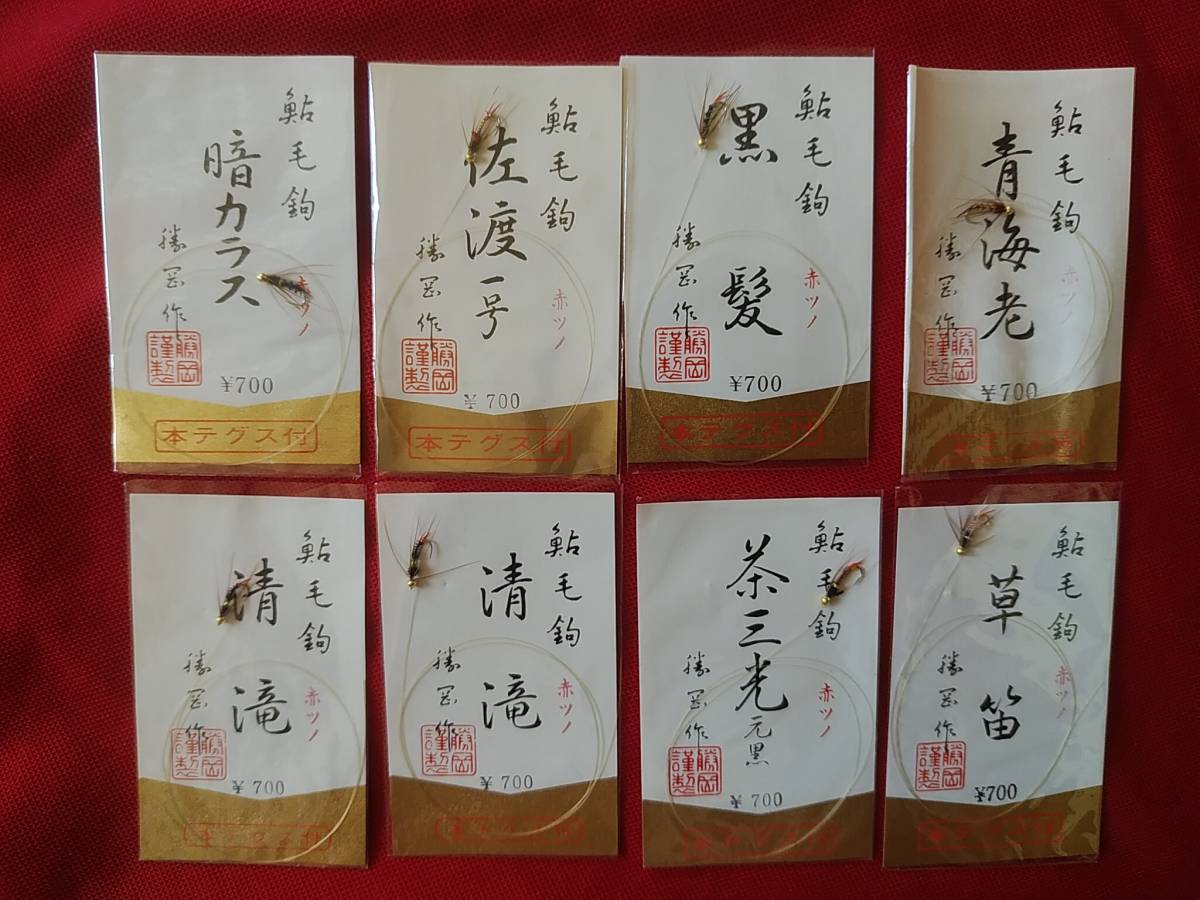 鮎毛鉤
暗カラス
赤ツノ
勝岡作
勝岡謹製
¥700
本テグス付
鮎毛鉤
佐渡一号
赤ツノ
勝岡作
勝岡謹製
¥700
本テグス付
鮎毛鉤
黒髪
赤ツノ
勝岡作
勝岡謹製
¥700
本テグス付
鮎毛鉤
青海老
赤ツノ
勝岡作
勝岡謹製
¥700
本テグス付
鮎毛鉤
清滝
赤ツノ
勝岡作
勝岡謹製
¥700
本テグス付
鮎毛鉤
清滝
赤ツノ
勝岡作
勝岡謹製
¥700
本テグス付
鮎毛鉤
茶三光元黒
赤ツノ
勝岡作
勝岡謹製
¥700
本テグス付
鮎毛鉤
草笛
赤ツノ
勝岡作
勝岡謹製
¥700
本テグス付